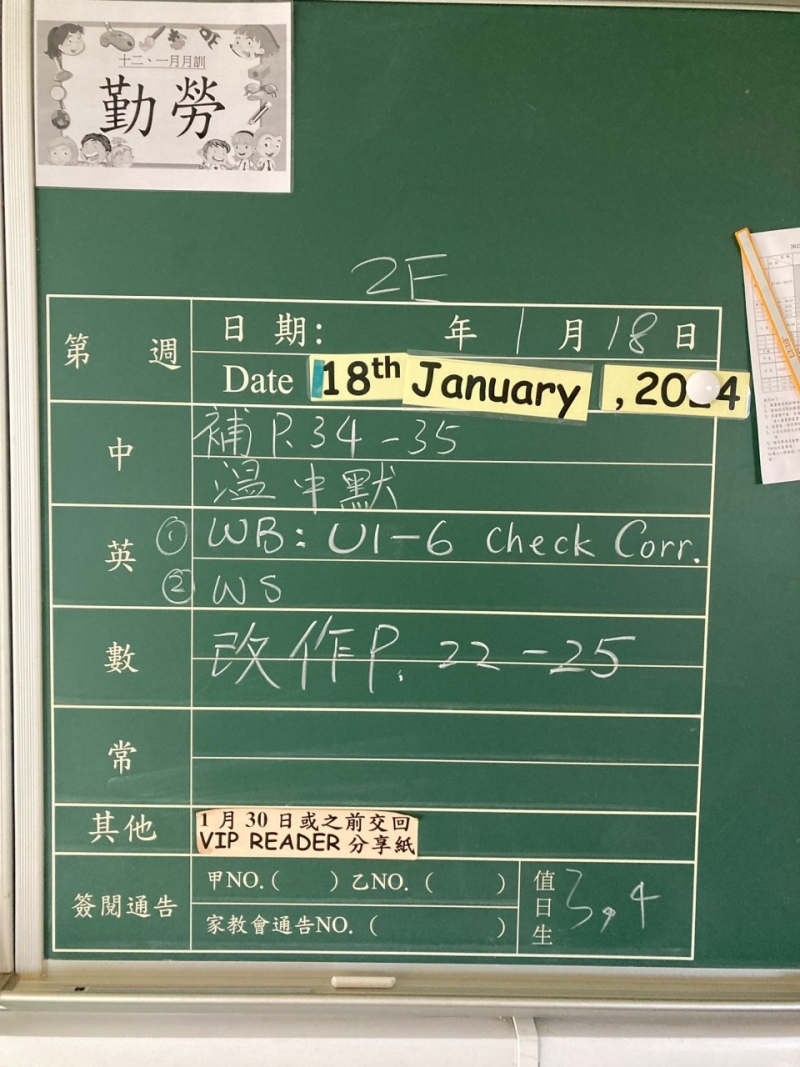 十二、一月月訓
勤勞
2E
第 週
日期: 年 1 月 18 日
Date 18th January, 2024
中
補 P.34-35
溫中默
英
① WB: U1-6 check Corr.
② WS
數
改作 P. 22-25
常
其他
1 月 30 日或之前交回
VIP READER 分享紙
簽閱通告
甲NO.( ) 乙NO. ( )
家教會通告NO. ( )
值日生
3,4